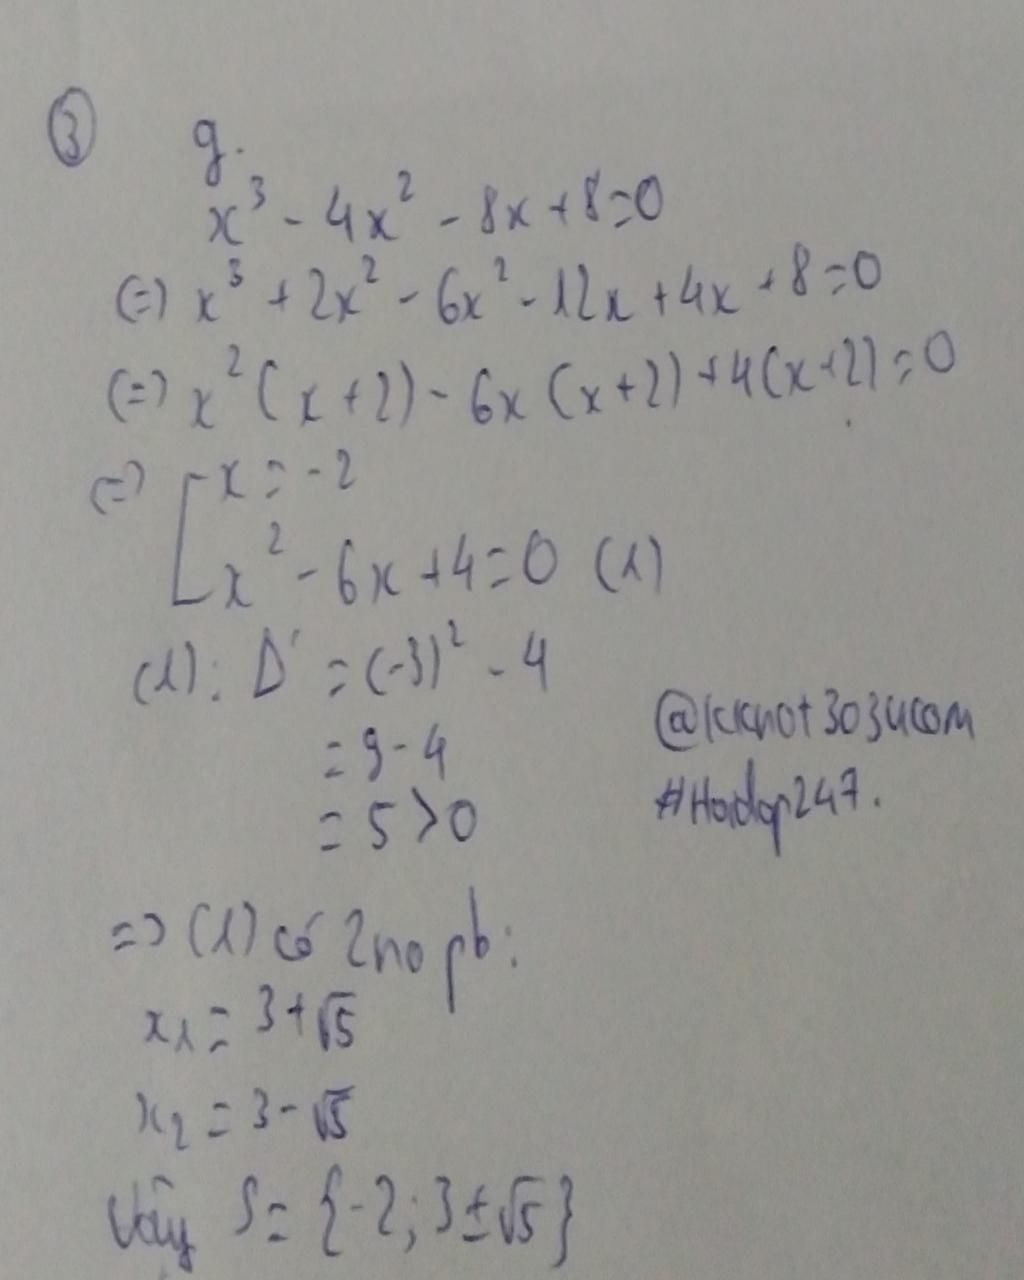 ③ g.
x³ - 4x² - 8x + 8 = 0
(=) x³ + 2x² - 6x² - 12x + 4x + 8 = 0
(=) x² (x + 2) - 6x (x + 2) + 4(x + 2) = 0
(=) [ x = -2
x² - 6x + 4 = 0 (1)
(1): Δ' = (-3)² - 4
= 9 - 4
= 5 > 0
@kknot3034com
#Hoidap247.
=> (1) có 2 no pb:
x₁ = 3 + √5
x₂ = 3 - √5
Vậy S = {-2; 3 ± √5}